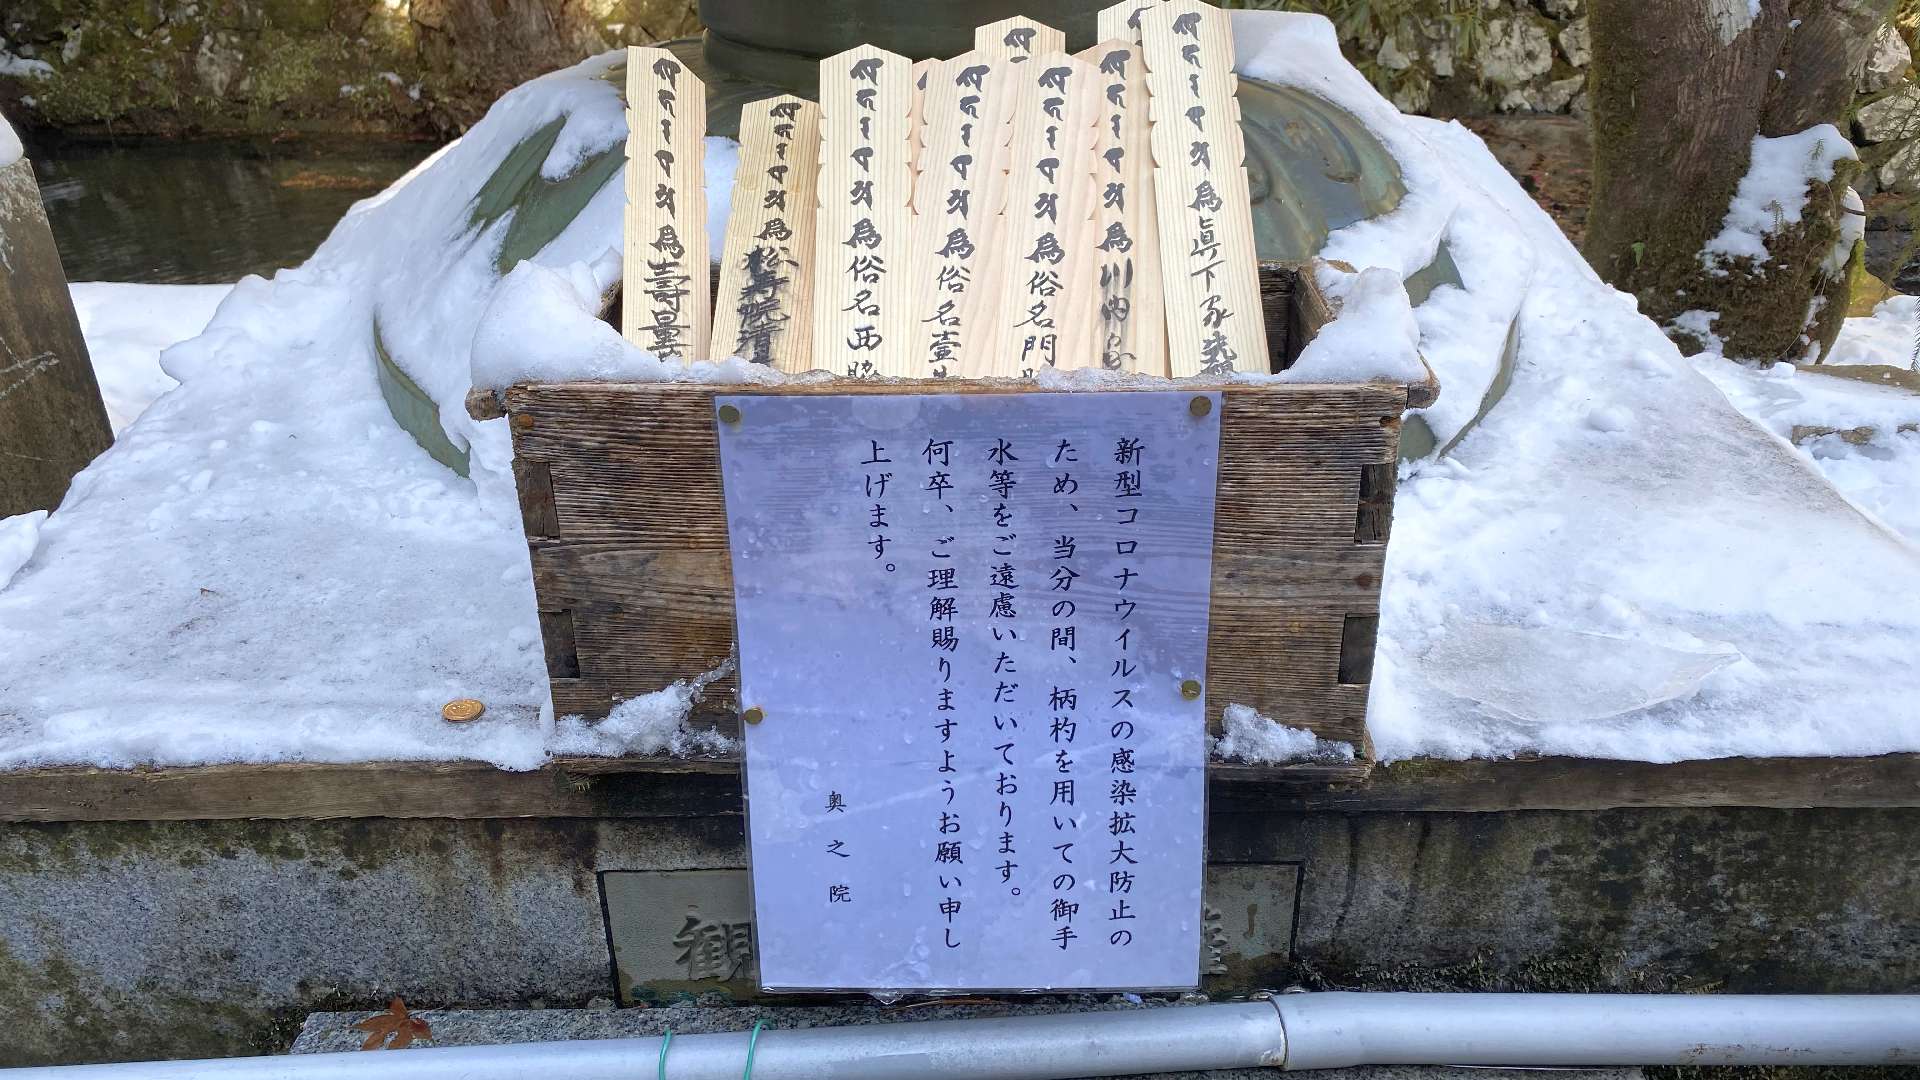 新型コロナウイルスの感染拡大防止の
ため、当分の間、柄杓を用いての御手
水等をご遠慮いただいております。
何卒、ご理解賜りますようお願い申し
上げます。
奥之院
為眞下家先
為川内家
為俗名門
為俗名壹
為俗名西脇
為松壽院清
為壽量
観